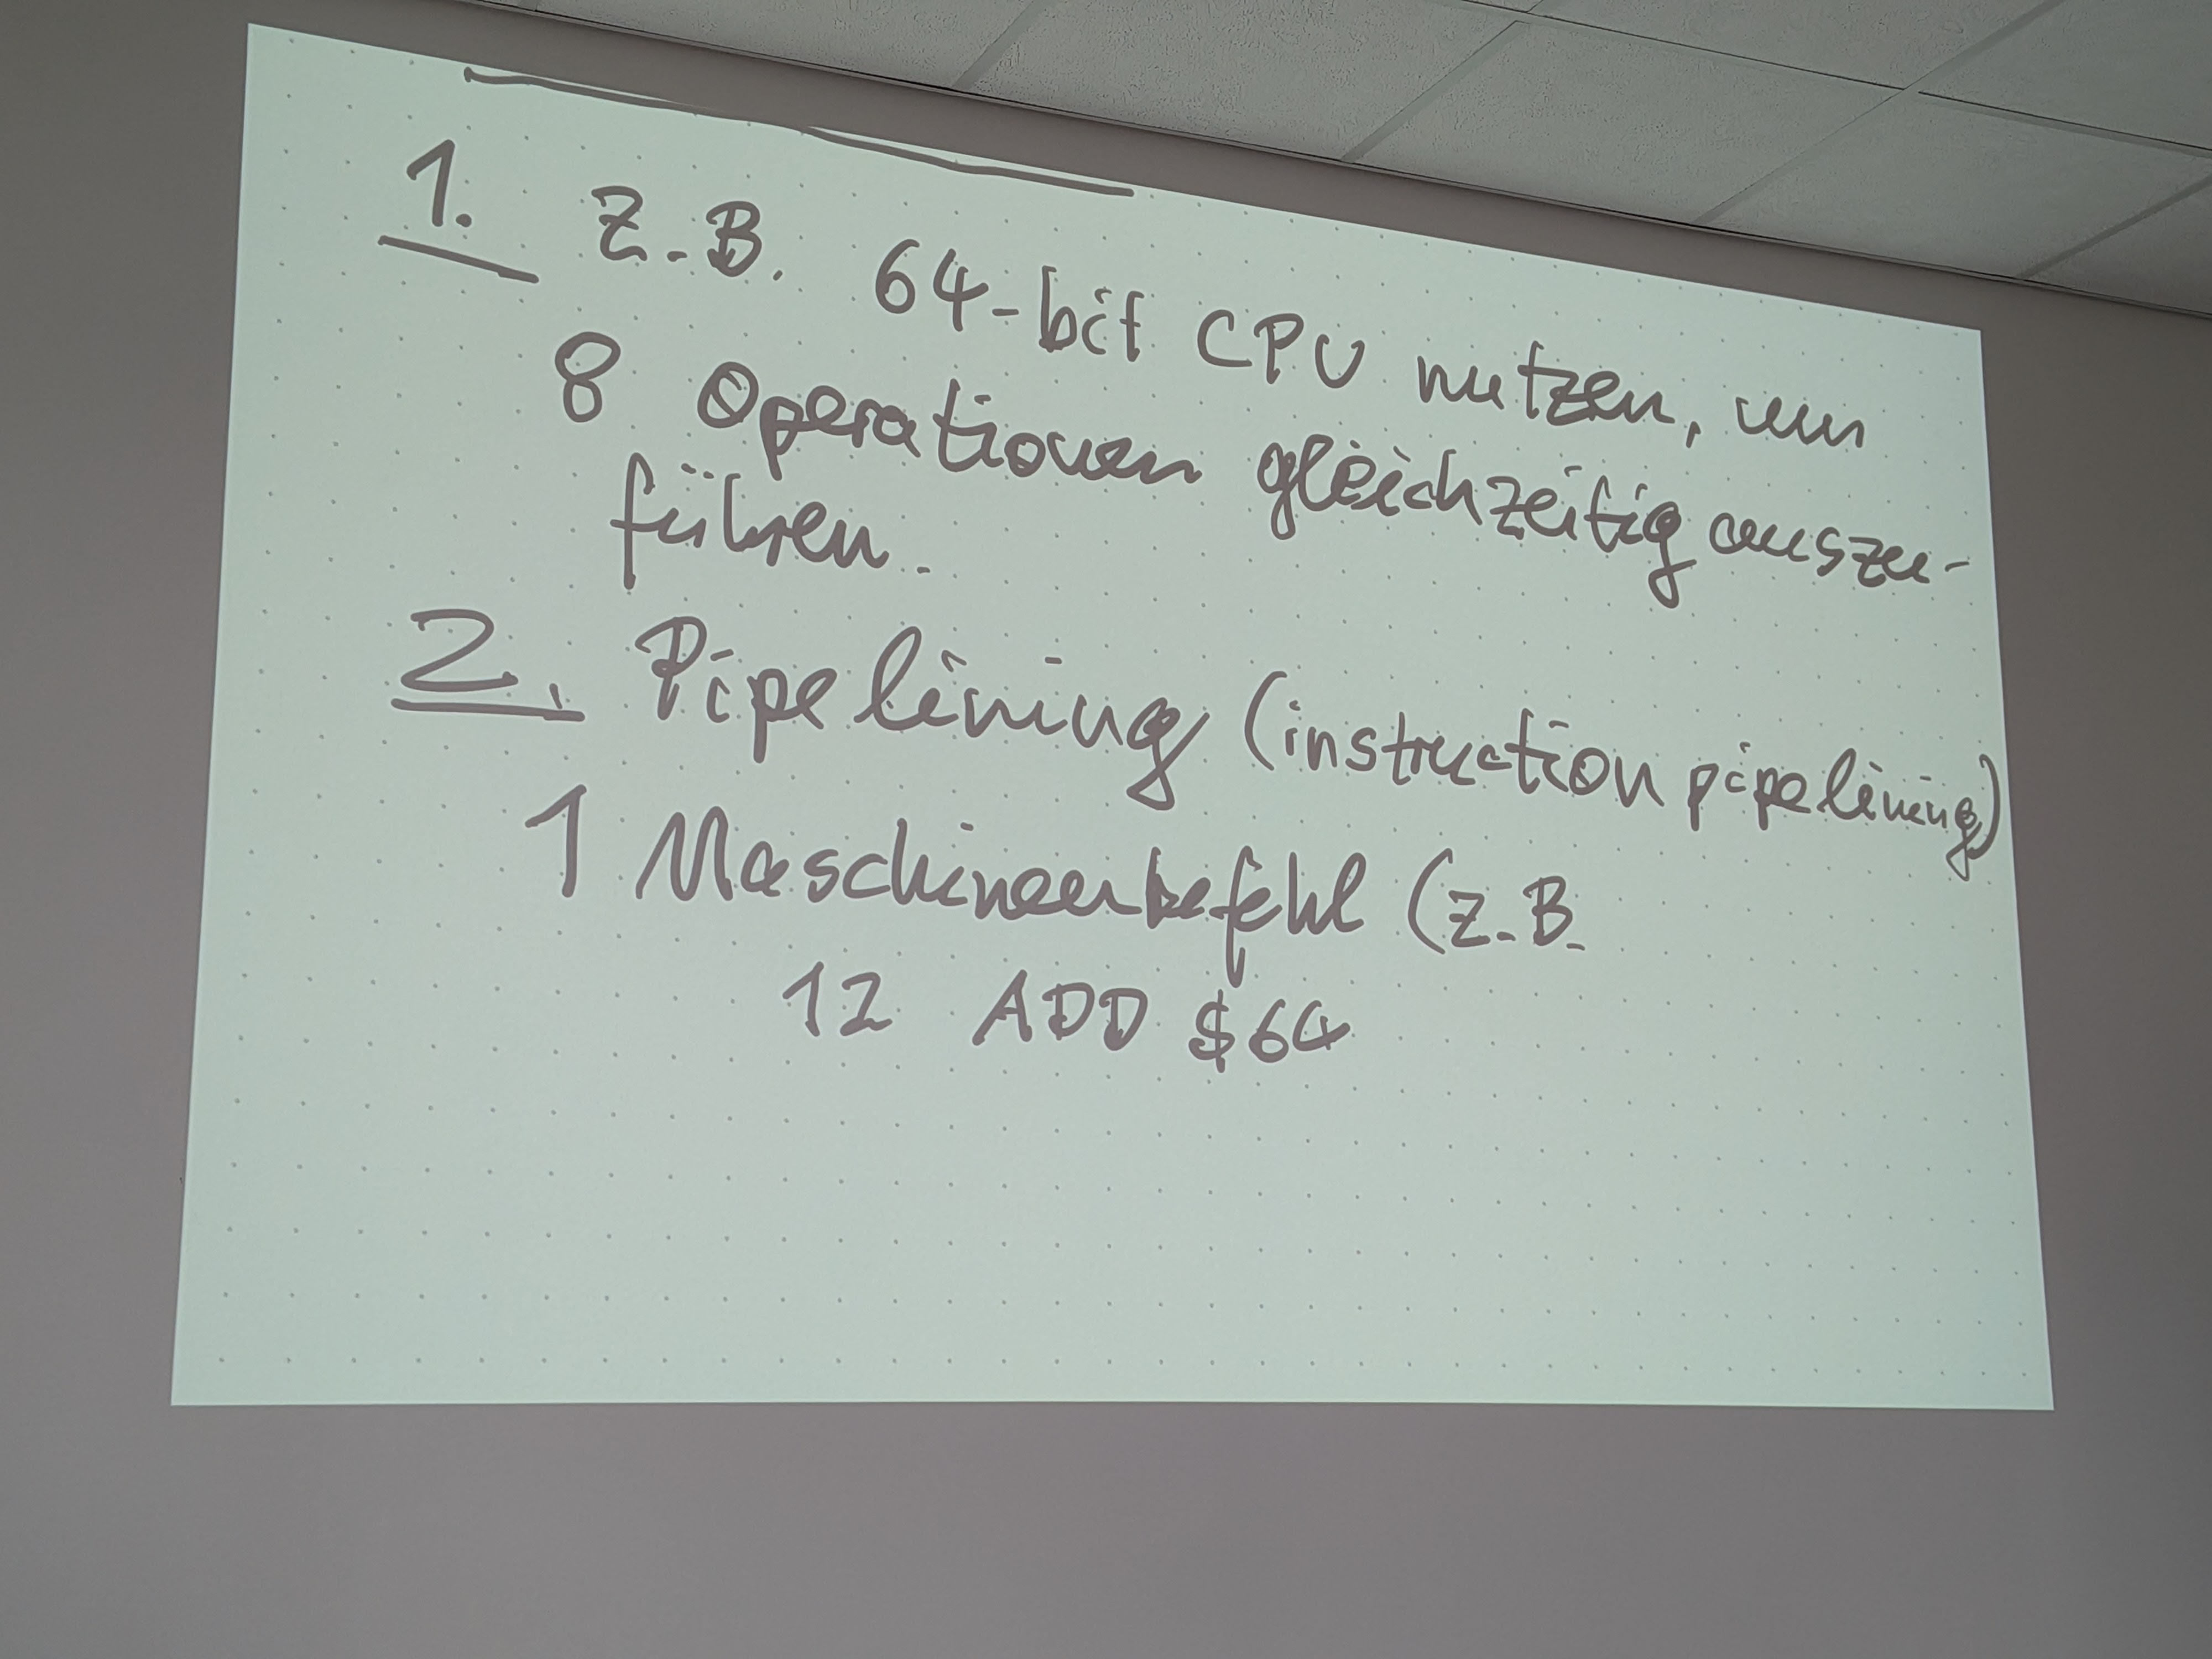 1. Z.B. 64-bit CPU nutzen, um
8 Operationen gleichzeitig auszu-
führen.
2. Pipelining (instruction pipelining)
1 Maschinenbefehl (z.B.
12 ADD $64